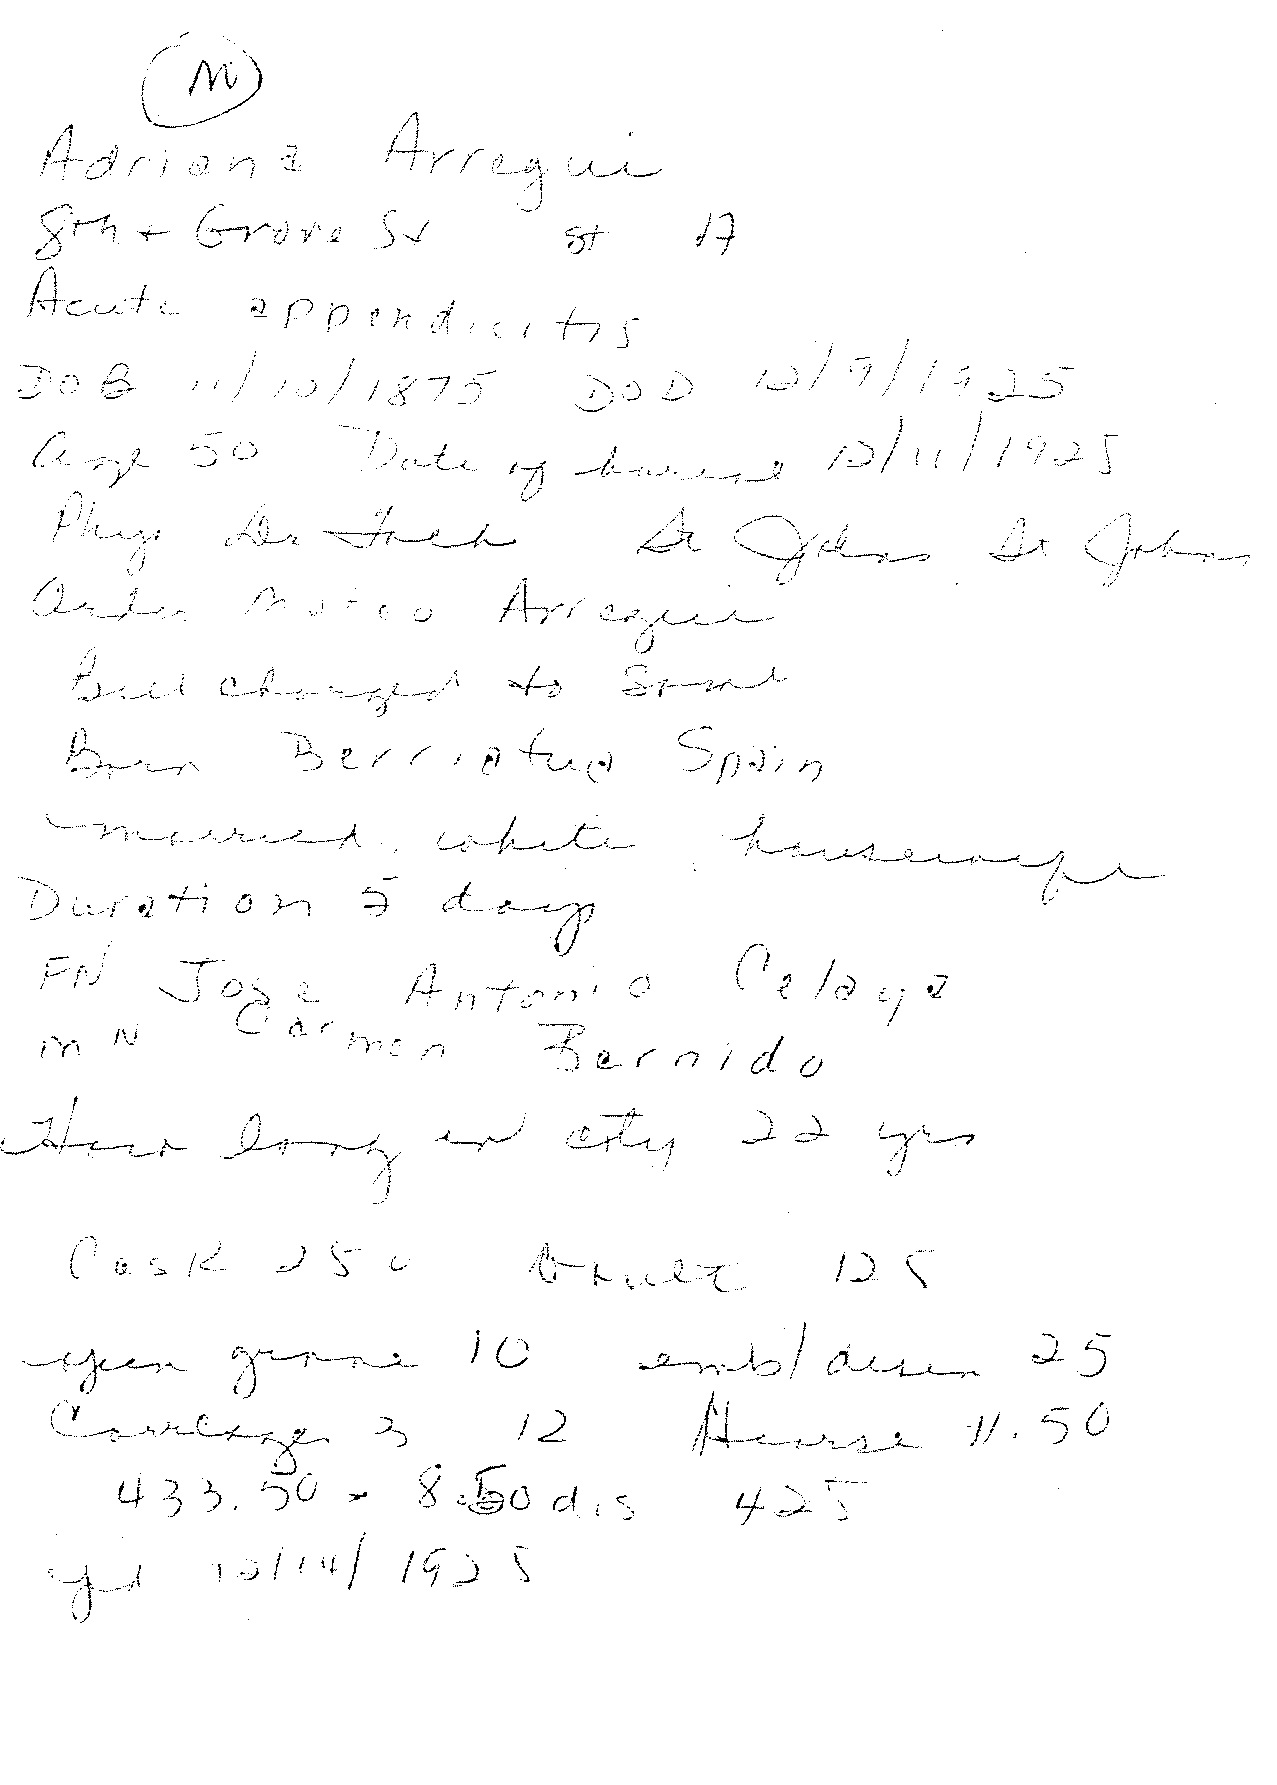 M
Adriana Arregui
8th + Grove St at 17
Acute appendicitis
DOB 11/10/1875 DOD 12/9/1925
Age 50 Date of bureal 12/11/1925
Phys Dr St Johns St Johns
Order Mateo Arregui
Bill charged to same
Born Berriatua Spain
married, white, housewife
Duration 5 days
FN Jose Antonio Celaya
MN Carmen Bernido
How long in city 22 yrs
Cask 250 Vault 125
open grave 10 emb/dresn 25
Carreages 3 12 Hearse 11.50
433.50 - 8.50 dis 425
pd 12/14/1925